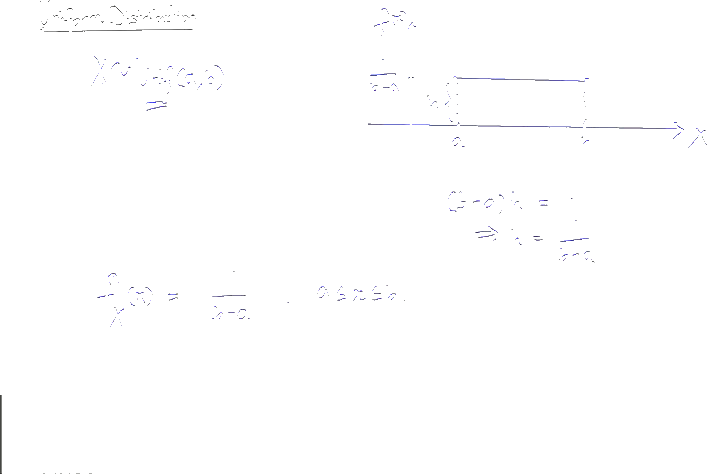 Uniform Distribution
X ~ Unif(a,b)
f(x)
1/(b-a)
h
a b X
(b-a)h = 1
⇒ h = 1/(b-a)
f_X(x) = 1/(b-a) , a ≤ x ≤ b.